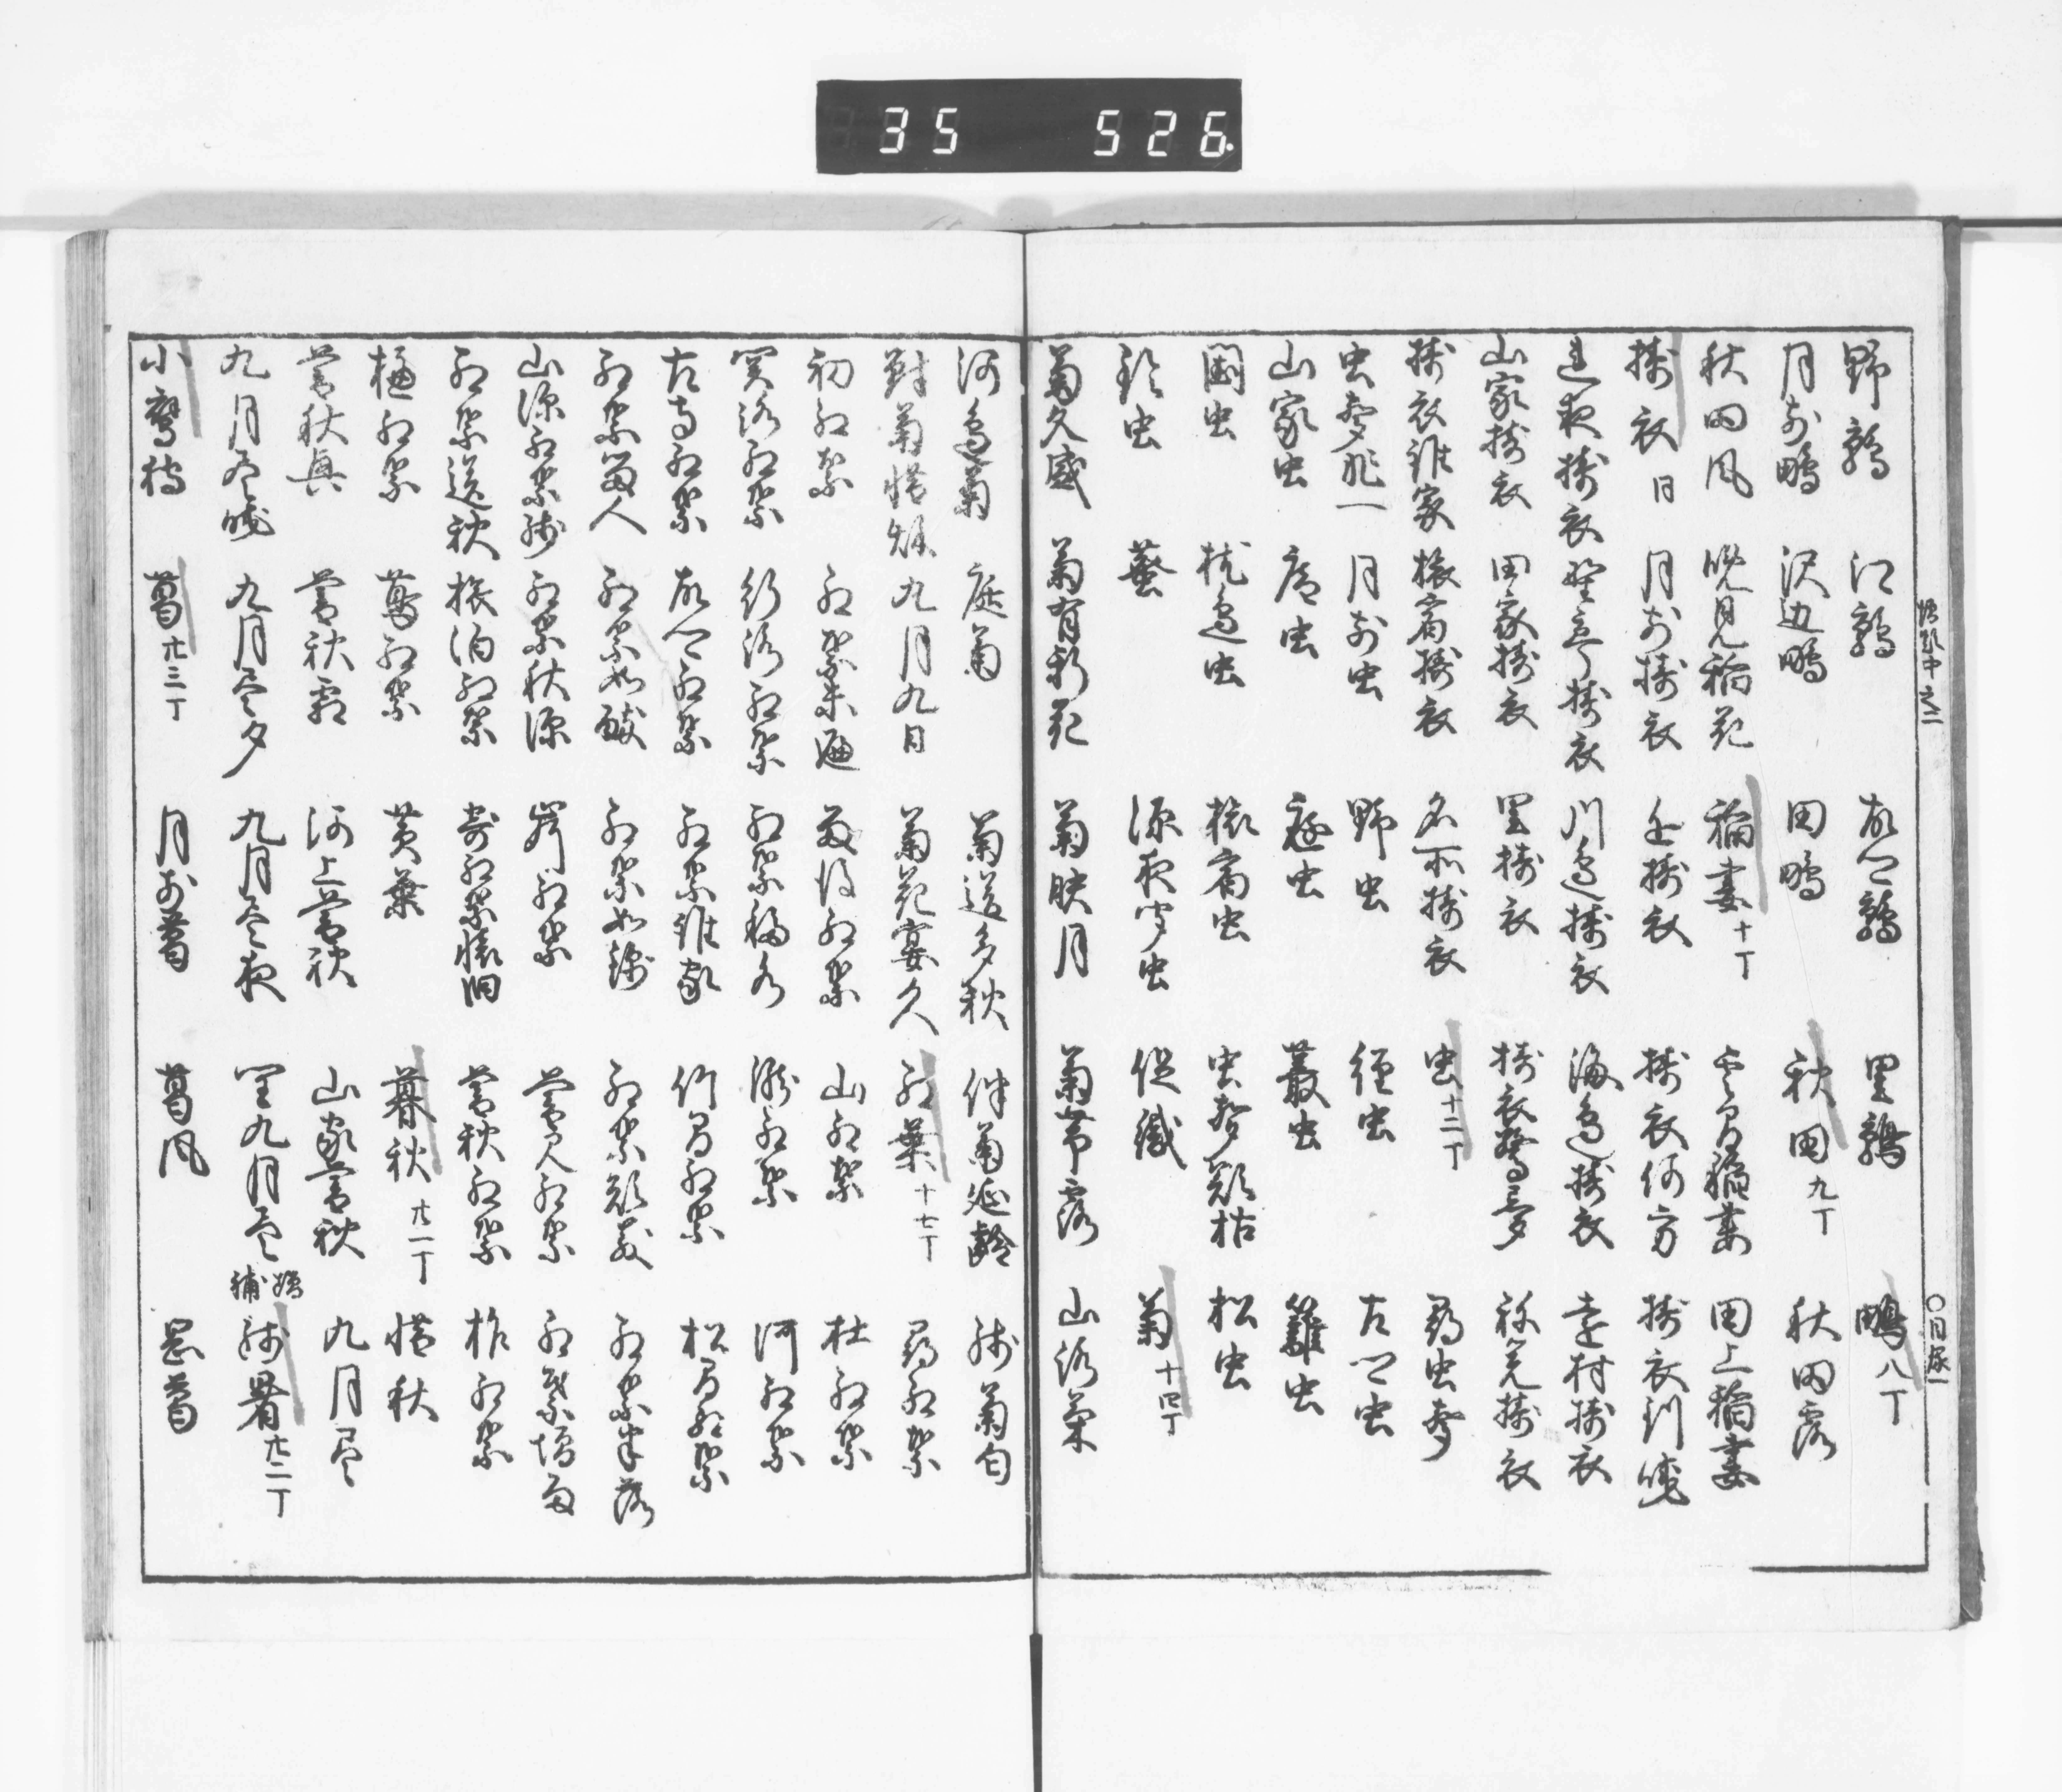 35 526
野鶉 江鶉 故郷鶉 里鶉 鴫八丁
月前鴫 沢辺鴫 田鴫 秋田九丁 秋田露
秋田風 晩見稲花 稲妻十丁 雲間稲妻 田上稲妻
擣衣 月前擣衣 擣衣 擣衣何方 擣衣到暁
連夜擣衣 野亭擣衣 川辺擣衣 海辺擣衣 遠村擣衣
山家擣衣 田家擣衣 里擣衣 擣衣驚夢 擣衣
擣衣誰家 旅宿擣衣 名所擣衣 虫十二丁 尋虫声
虫声非一 月前虫 野虫 径虫 古郷虫
山家虫 虫 庭虫 叢虫 籬虫
閨虫 枕辺虫 旅宿虫 虫声欲枯 松虫
鈴虫 蛬 深夜聞虫 促織 菊十四丁
菊久盛 菊有新花 菊映月 菊帯露 山路菊
河辺菊 庭菊 菊送多秋 伴菊延齢 残菊匂
対菊惜秋 九月九日 菊花宴久 紅葉十七丁 尋紅葉
初紅葉 紅葉未遍 紅葉 山紅葉 杜紅葉
関路紅葉 行路紅葉 紅葉移水 滝紅葉 河紅葉
古寺紅葉 故郷紅葉 紅葉誰家 竹間紅葉 松間紅葉
紅葉留人 紅葉如 紅葉如錦 紅葉 紅葉半落
山深紅葉残 紅葉秋深 岸紅葉 暮見紅葉 紅葉増雨
紅葉送秋 旅泊紅葉 寄紅葉懐旧 暮秋紅葉 柞紅葉
櫨紅葉 蔦紅葉 黄葉 暮秋廿一丁 惜秋
暮秋興 暮秋霜 河上暮秋 山家暮秋 九月尽
九月尽暁 九月尽夕 九月尽夜 閏九月尽 増補 残暑廿二丁
小鷹狩 葛廿三丁 月前葛 葛風 葛